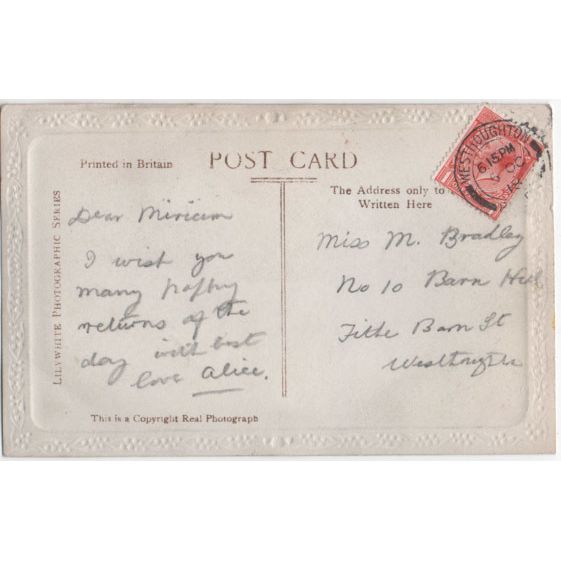 Printed in Britain
POST CARD
WESTHOUGHTON
6.15 PM
The Address only to
Written Here
LILYWHITE PHOTOGRAPHIC SERIES
Dear Miricim
I wish you
many happy
returns of the
day with best
love Alice.
Miss M. Bradley
No 10 Barn Hill
Tithe Barn St
Westhoughton
This is a Copyright Real Photograph